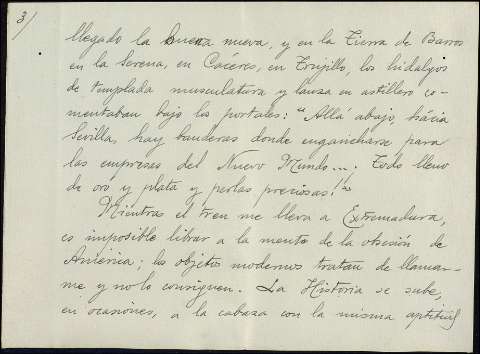 3/
llegado la buena nueva, y en la Tierra de Barros
en la Serena, en Cáceres, en Trujillo, los hidalgos
de templada musculatura y lanza en astillero co-
mentaban bajo los portales: "Allá abajo, hácia
Sevilla, hay banderas donde engancharse para
las empresas del Nuevo Mundo.... Todo lleno
de oro y plata y perlas preciosas!"
Mientras el tren me lleva a Extremadura,
es imposible librar a la mente de la obsesión de
América; los objetos modernos tratan de llamar-
me y no lo consiguen. La Historia se sube,
en ocasiones, a la cabeza con la misma aptitud